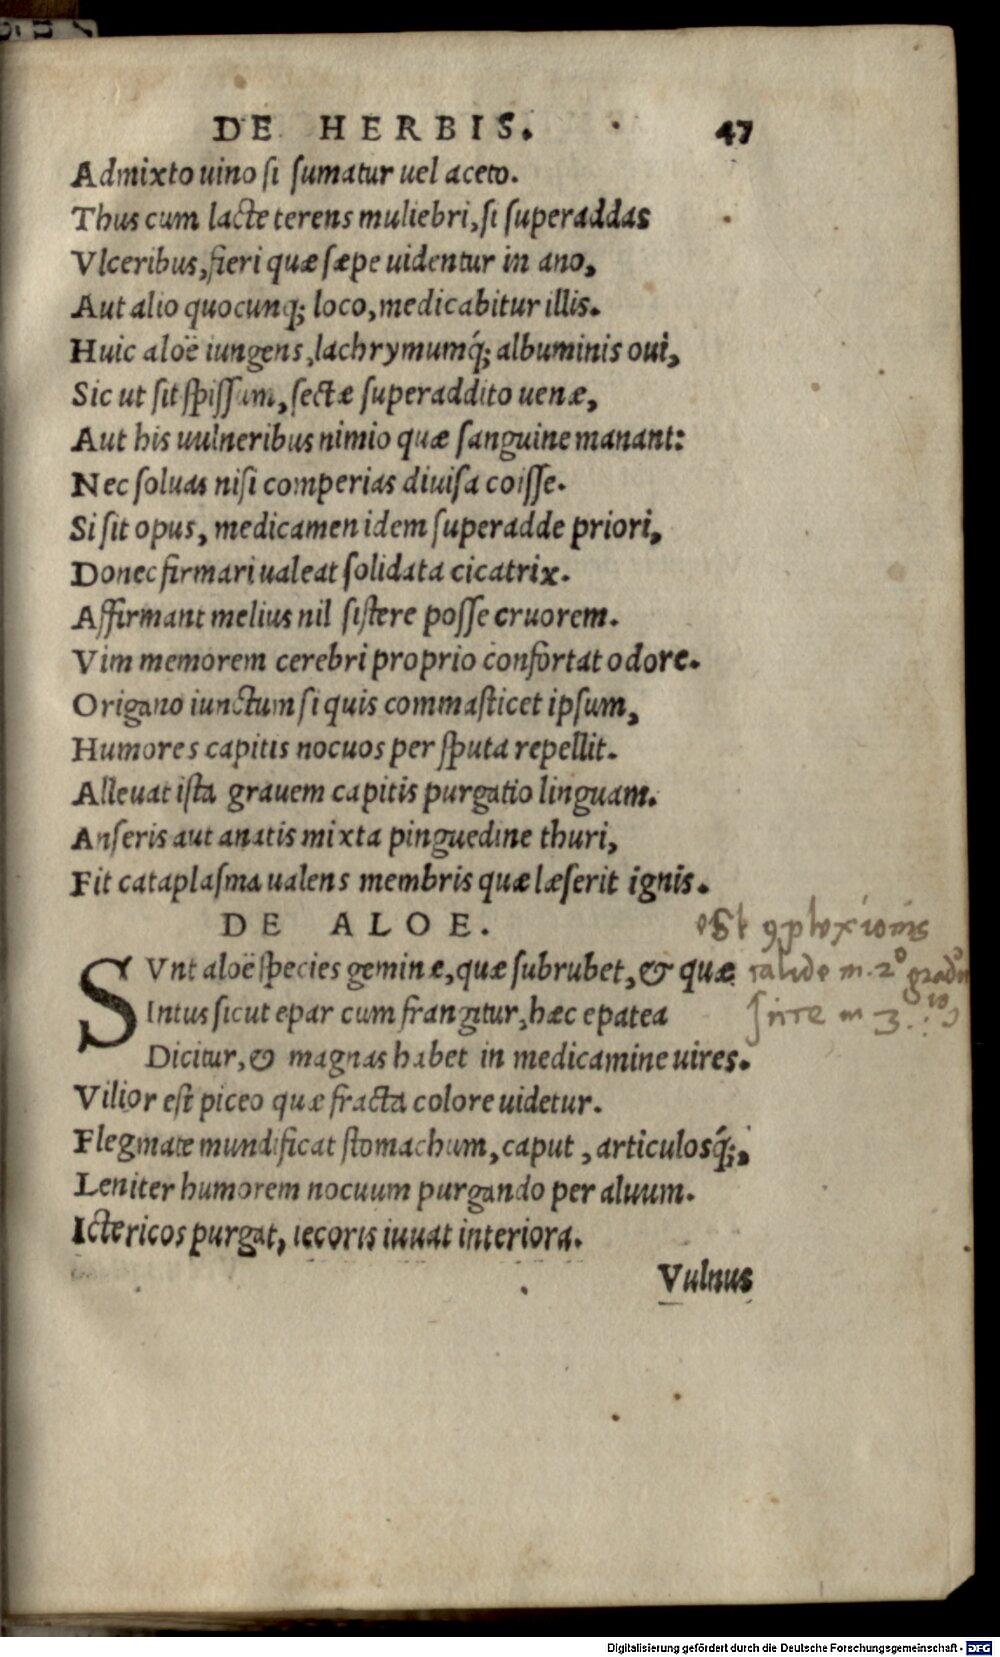 DE HERBIS. 47
Admixto uino si sumatur uel aceto.
Thus cum lacte terens muliebri, si superaddas
Vlceribus, fieri quæ sæpe uidentur in ano,
Aut alio quocunq; loco, medicabitur illis.
Huic aloë iungens, lachrymumq́; albuminis oui,
Sic ut sit spissum, sectæ superaddito uenæ,
Aut his uulneribus nimio quæ sanguine manant:
Nec soluas nisi comperias diuisa coisse.
Si sit opus, medicamen idem superadde priori,
Donec firmari ualeat solidata cicatrix.
Affirmant melius nil sistere posse cruorem.
Vim memorem cerebri proprio confortat odore.
Origano iunctum si quis commasticet ipsum,
Humores capitis nocuos per sputa repellit.
Alleuat ista grauem capitis purgatio linguam.
Anseris aut anatis mixta pinguedine thuri,
Fit cataplasma ualens membris quæ læserit ignis.
DE ALOE.
SVnt aloë species geminæ, quæ subrubet, & quæ
Intus sicut epar cum frangitur, hæc epatea
Dicitur, & magnas habet in medicamine uires.
Vilior est piceo quæ fracta colore uidetur.
Flegmate mundificat stomachum, caput, articulosq́;,
Leniter humorem nocuum purgando per aluum.
Ictericos purgat, iecoris iuuat interiora.
Vulnus
est
calide in 2° gradu
in 3.
Digitalisierung gefördert durch die Deutsche Forschungsgemeinschaft - DFG